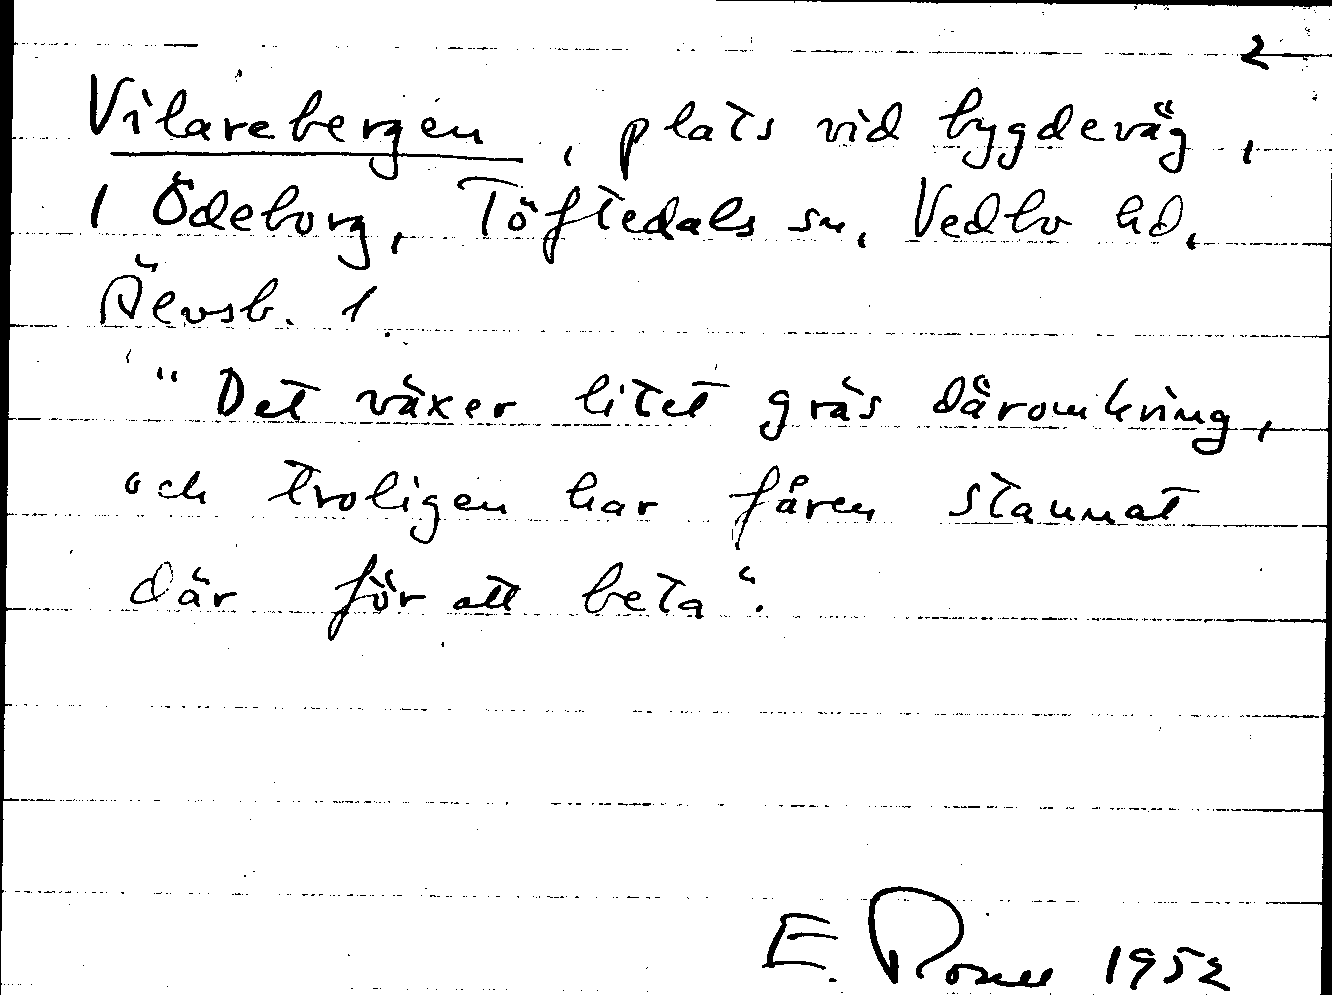 2
Vilarebergen, plats vid bygdeväg,
i Ödeborg, Töftedals sn, Vedbo hd,
Älvsb. l.
"Det växer litet gräs däromkring,
och troligen har fåren stannat
där för att beta".
E. 1952